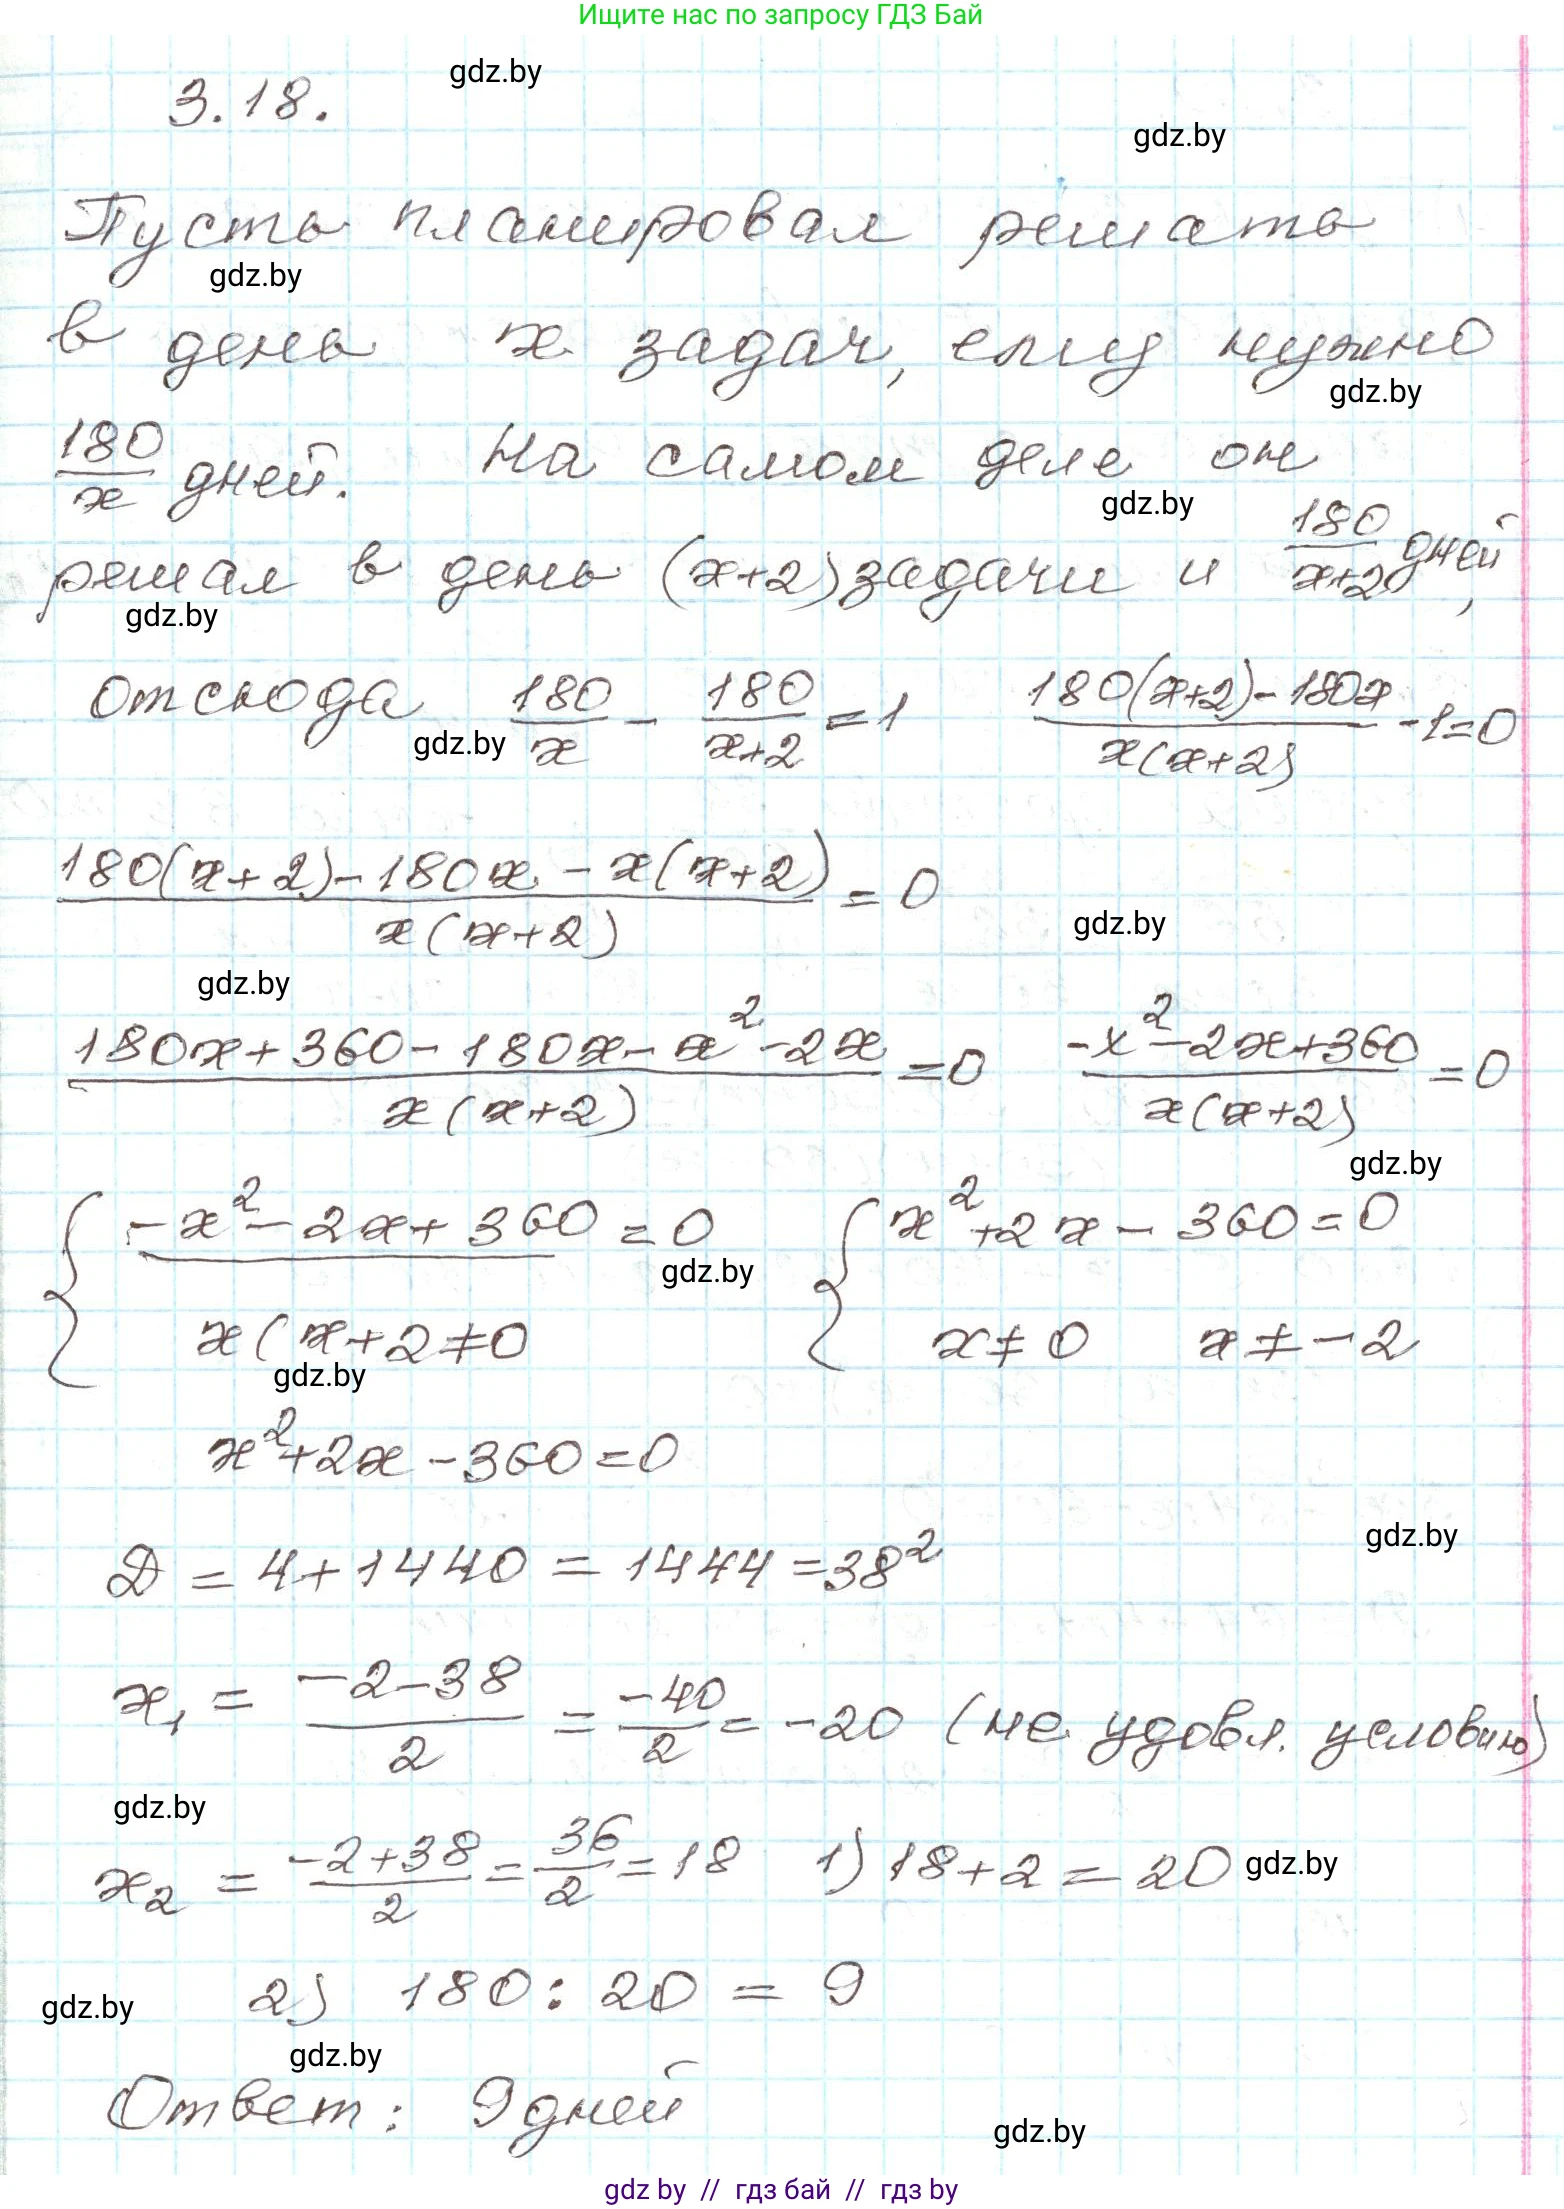 Ищите нас по запросу ГДЗ Бай
3.18.
gdz.by
gdz.by
Пусть планировал решать
gdz.by
в день x задач, ему нужно
gdz.by
180/x дней. На самом деле он
gdz.by
решал в день (x+2) задачи и 180/(x+2) дней,
gdz.by
отсюда 180/x - 180/(x+2) = 1 (180(x+2)-180x)/(x(x+2)) - 1 = 0
gdz.by
(180(x+2)-180x-x(x+2))/(x(x+2)) = 0
gdz.by
gdz.by
(180x+360-180x-x²-2x)/(x(x+2)) = 0 (-x²-2x+360)/(x(x+2)) = 0
gdz.by
{ -x²-2x+360 = 0 { x²+2x-360=0
gdz.by
x(x+2≠0 x≠0 x≠-2
gdz.by
x²+2x-360=0
gdz.by
D = 4+1440 = 1444 = 38²
x₁ = (-2-38)/2 = -40/2 = -20 (не удовл. условию)
gdz.by
x₂ = (-2+38)/2 = 36/2 = 18 1) 18+2 = 20
gdz.by
2) 180:20 = 9
gdz.by
gdz.by
Ответ: 9 дней
gdz.by
gdz by // гдз бай // гдз by